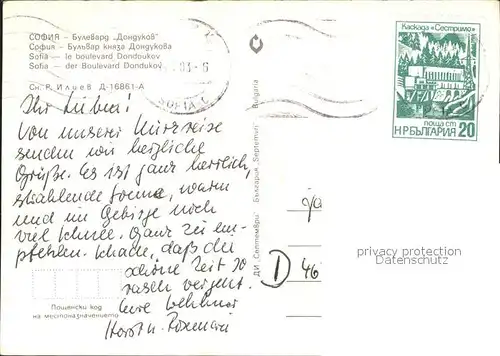 СОФИЯ – Булевард „Дондуков"
София – Бульвар князя Дондукова
Sofia – le boulevard Dondoukov
Sofia – der Boulevard Dondukov
Сн. Р. Илиев Д-16861-А
Ihr Lieben!
Von unserer Kurzreise
senden wir herzliche
Grüße. Es ist ganz herrlich,
strahlende Sonne, warm
und im Gebirge noch
viel Schnee. Ganz zu em-
pfehlen. Schade, daß die
schöne Zeit so
rasch vergeht.
Eure
Horst u. Rosmarie
Пощенски код
на местоназначението
ДИ „Септември" България "Septemvri" Bulgaria
SOFIA C
Каскада «Сестримо»
поща ст
НР БЪЛГАРИЯ 20
D 46
privacy protection
Datenschutz